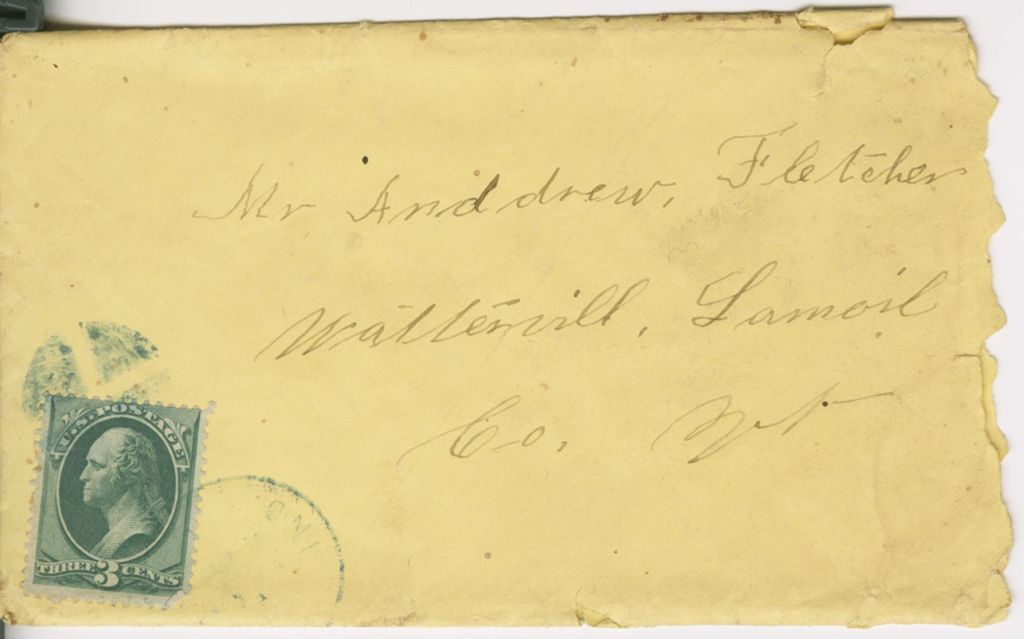 Mr Anddrew, Fletcher
Wattervill, Lamoil
Co. Vt
U.S. POSTAGE
THREE 3 CENTS
IND